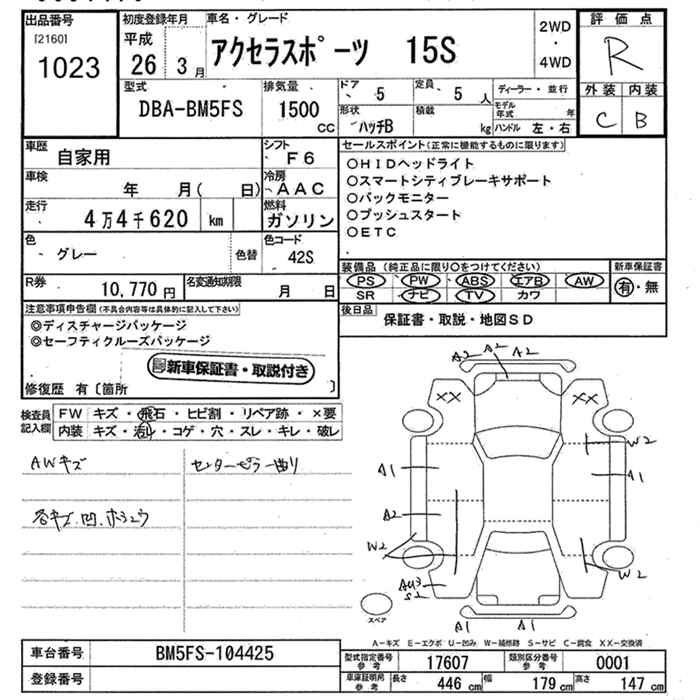 出品番号
[2160]
1023
初度登録年月
平成
26年 3月
車名・グレード
アクセラスポーツ 15S
2WD
・
4WD
評価点
R
外装 内装
C B
型式
DBA-BM5FS
排気量
1500
CC
ドア
5
定員
5 人
ディーラー・並行
形状
ハッチB
積載
kg
モデル年式 年
ハンドル 左・右
車歴
自家用
シフト
F6
車検
年 月( 日)
冷房
AAC
走行
4万4千620 km
燃料
ガソリン
色
グレー
色替
色コード
42S
R券
10,770 円
名変通知期限
月 日
セールスポイント(正常に機能するものに限ります)
○HIDヘッドライト
○スマートシティブレーキサポート
○バックモニター
○プッシュスタート
○ETC
装備品(純正品に限り○をつけてください)
PS PW ABS エアB AW
SR ナビ TV カワ
新車保証書
有・無
後日品
保証書・取説・地図SD
注意事項申告欄(不具合内容等は具体的に記入して下さい)
◎ディスチャージパッケージ
◎セーフティクルーズパッケージ
新車保証書・取説付き
修復歴 有〔箇所 〕
検査員記入欄
FW キズ・飛石・ヒビ割・リペア跡・×要
内装 キズ・汚れ・コゲ・穴・スレ・キレ・破レ
AWキズ
センターピラー曲り
各キズ.凹.ホシュウ
A2 A2 A2
XX XX
W2
A1 A1
A2
W2
W2
AU3
S2
A1 A1
スペア
A-キズ E-エクボ U-凹み W-補修跡 S-サビ C-腐食 XX-交換済
車台番号
BM5FS-104425
登録番号
型式指定番号
参考
17607
類別区分番号
参考
0001
車庫証明用
参考
長さ 446 cm
幅 179 cm
高さ 147 cm